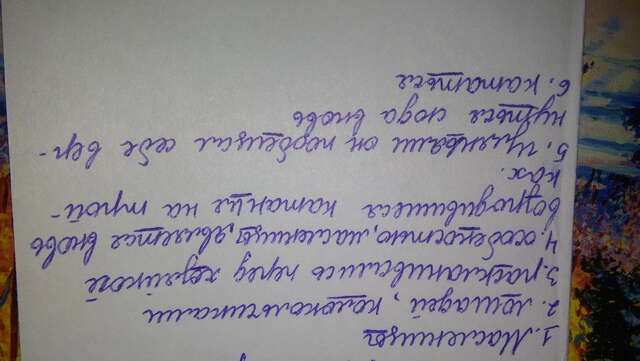 1. Масленицы
2. лошадей, колокольчиками
3. раскланивались перед хозяйкой
4. особеностью, масленицы, является вновь
возродившиеся катания на трой-
ках.
5. он пообещал себе вер-
нуться сюда вновь
6. кататься